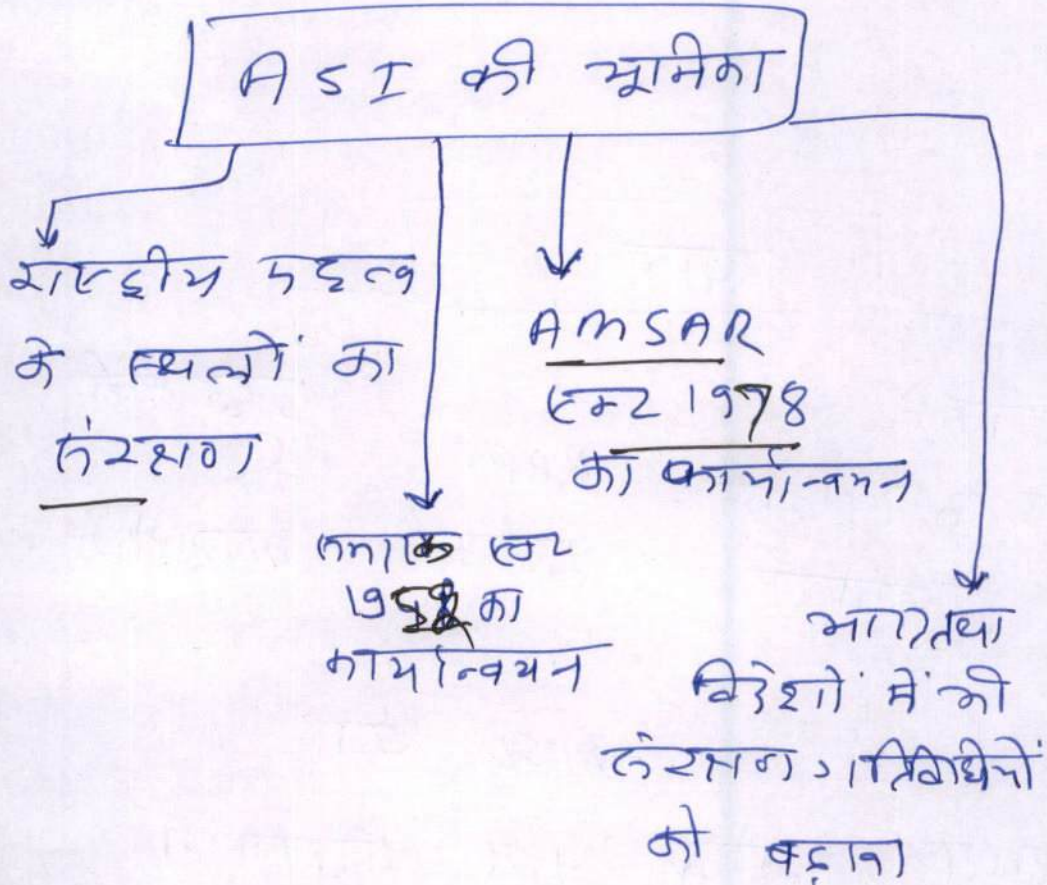 ASI की भूमिका
राष्ट्रीय महत्व
के स्थलों का
संरक्षण
स्मारक एक्ट
1958 का
कार्यान्वयन
AMSAR
एक्ट 1978
का कार्यान्वयन
भारत तथा
विदेशों में भी
संरक्षण गतिविधियों
को बढ़ावा